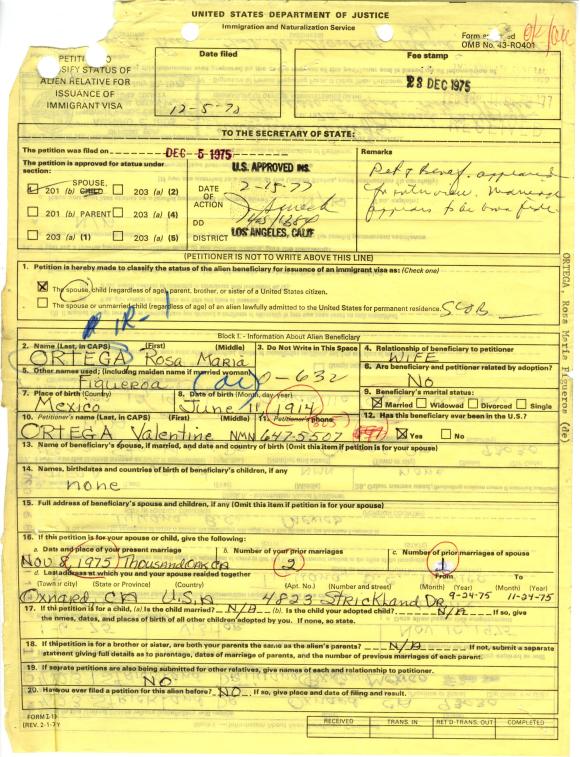 UNITED STATES DEPARTMENT OF JUSTICE
Immigration and Naturalization Service
OMB No. 43-RO401
ok/
PETITION
SIFY STATUS OF
ALIEN RELATIVE FOR
ISSUANCE OF
IMMIGRANT VISA
Date filed
12-5-72
Fee stamp
23 DEC 1975
TO THE SECRETARY OF STATE:
The petition was filed on DEC 5 1975
The petition is approved for status under section:
201 (b) SPOUSE, CHILD 203 (a) (2)
201 (b) PARENT 203 (a) (4)
203 (a) (1) 203 (a) (5)
U.S. APPROVED INS.
DATE OF ACTION 2-18-77
DD
DISTRICT LOS ANGELES, CALIF
Remarks
Pet & Benef. appeared
for interview. Marriage
appears to be bona fide
(PETITIONER IS NOT TO WRITE ABOVE THIS LINE)
1. Petition is hereby made to classify the status of the alien beneficiary for issuance of an immigrant visa as: (Check one)
X The spouse, child (regardless of age) parent, brother, or sister of a United States citizen.
The spouse or unmarried child (regardless of age) of an alien lawfully admitted to the United States for permanent residence.
IR-1
Block I. - Information About Alien Beneficiary
2. Name (Last, in CAPS) (First) (Middle)
ORTEGA Rosa Maria
3. Do Not Write in This Space
4. Relationship of beneficiary to petitioner
WIFE
5. Other names used; (including maiden name if married woman)
Figueroa (de)
632
6. Are beneficiary and petitioner related by adoption?
No
7. Place of birth (Country)
Mexico
8. Date of birth (Month, day, year)
June 11, 1914
9. Beneficiary's marital status:
X Married Widowed Divorced Single
10. Petitioner's name (Last, in CAPS) (First) (Middle)
ORTEGA Valentine NMN
11. Petitioner's phone
647-5507
12. Has this beneficiary ever been in the U.S.?
X Yes No
13. Name of beneficiary's spouse, if married, and date and country of birth (Omit this item if petition is for your spouse)
14. Names, birthdates and countries of birth of beneficiary's children, if any
none
15. Full address of beneficiary's spouse and children, if any (Omit this item if petition is for your spouse)
16. If this petition is for your spouse or child, give the following:
a. Date and place of your present marriage
Nov 8, 1975 Thousand Oak CA
b. Number of your prior marriages
2
c. Number of prior marriages of spouse
1
d. Last address at which you and your spouse resided together
From To
(Town or city) (State or Province) (Country) (Apt. No.) (Number and street) (Month) (Year) (Month) (Year)
Oxnard, CA U.S.A 4823 Strickland Dr. 9-24-75 11-24-75
17. If this petition is for a child, (a) Is the child married? N/A (b). Is the child your adopted child? N/A If so, give
the names, dates, and places of birth of all other children adopted by you. If none, so state.
18. If this petition is for a brother or sister, are both your parents the same as the alien's parents? N/A If not, submit a separate
statement giving full details as to parentage, dates of marriage of parents, and the number of previous marriages of each parent.
19. If separate petitions are also being submitted for other relatives, give names of each and relationship to petitioner.
NO
20. Have you ever filed a petition for this alien before? NO If so, give place and date of filing and result.
FORM I-13
(REV. 2-1-7
RECEIVED TRANS. IN RET'D-TRANS. OUT COMPLETED
ORTEGA, Rosa Maria Figueros (de)